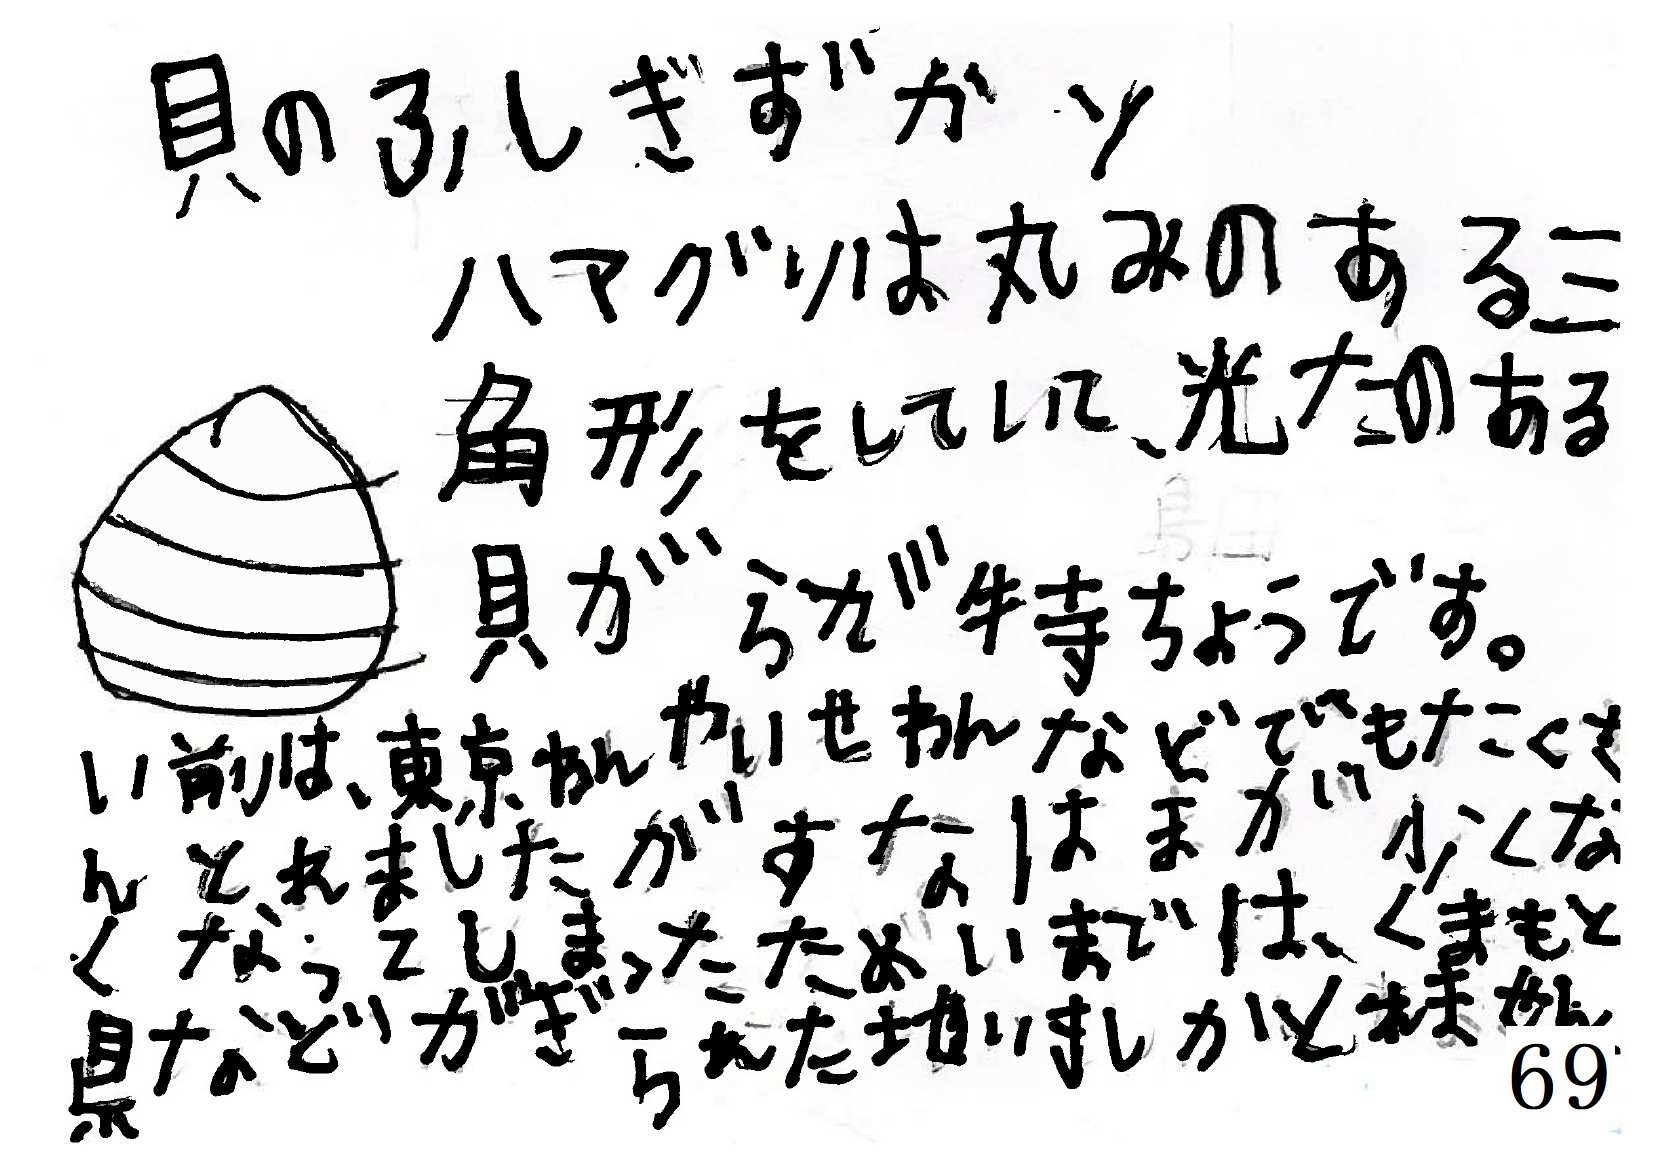 貝のふしぎずかん
ハマグリは丸みのある三
角形をしていて、光たくのある
貝がらが特ちょうです。
い前は、東京わんやいせわんなどでもたくさ
んとれましたがすなはまが少くな
くなってしまったためいまでは、くまもと
県などかぎられた地いきしかとれません
69